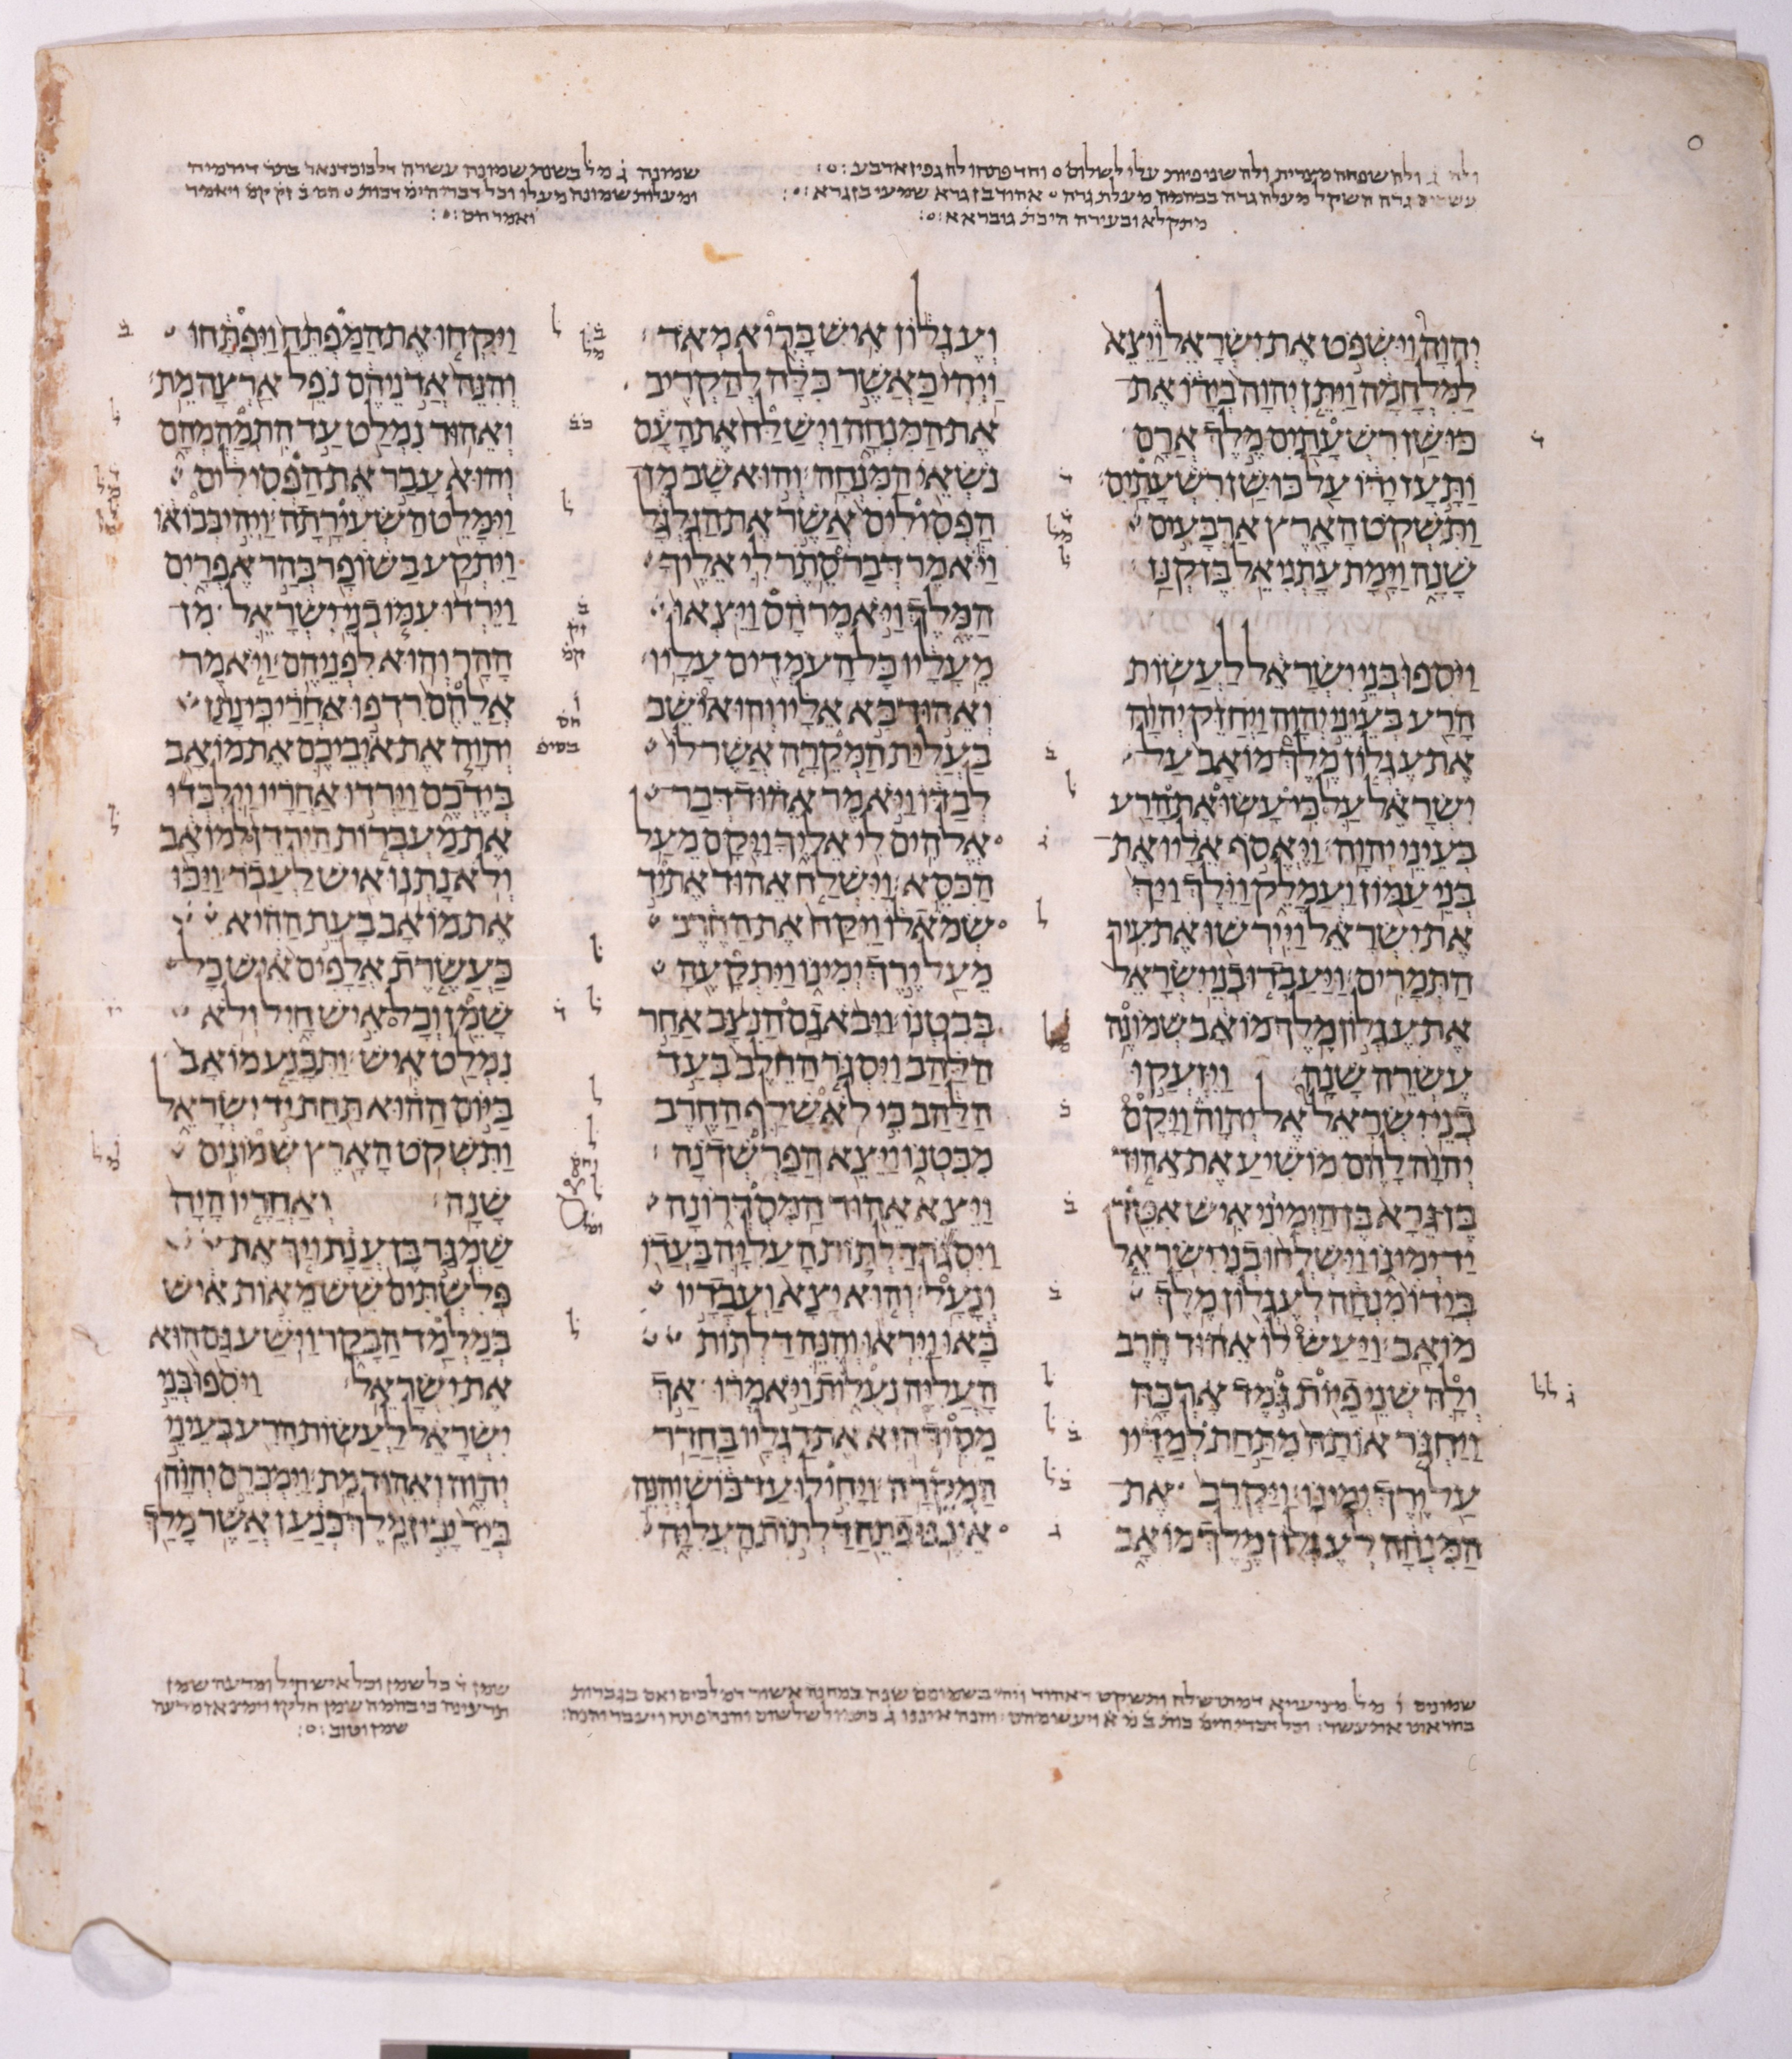 ולה ג ולה שפחה מצרית ולה שני פיות עלי לשלום וחד פתחו לה גפין ארבע
עשרים גרה השקל מעלה גרה בבהמה מעלת גרה אהוד בן גרא שמעי בן גרא
מתקלא ובעירה היכת גוברא א
שמונה ג מל בשנת שמונה עשרה דלבוכדנאצר בתר דירמיה
ומעלות שמונה מעלו וכל דברי הימ דכות הס ב זק קמ ויאמר
ואמר הס
יהוה וישפט את ישראל ויצא
למלחמה ויתן יהוה בידו את
כושן רשעתים מלך ארם
ותעז ידו על כושן רשעתים
ותשקט הארץ ארבעים
שנה וימת עתניאל בן קנז
ויספו בני ישראל לעשות
הרע בעיני יהוה ויחזק יהוה
את עגלון מלך מואב על
ישראל על כי עשו את הרע
בעיני יהוה ויאסף אליו את
בני עמון ועמלק וילך ויך
את ישראל ויירשו את עיר
התמרים ויעבדו בני ישראל
את עגלון מלך מואב שמונה
עשרה שנה ויזעקו
בני ישראל אל יהוה ויקם
יהוה להם מושיע את אהוד
בן גרא בן הימיני איש אטר
יד ימינו וישלחו בני ישראל
בידו מנחה לעגלון מלך
מואב ויעש לו אהוד חרב
ולה שני פיות גמד ארכה
ויחגר אותה מתחת למדיו
על ירך ימינו ויקרב את
המנחה לעגלון מלך מואב
ועגלון איש בריא מאד
ויהי כאשר כלה להקריב
את המנחה וישלח את העם
נשאי המנחה והוא שב מן
הפסילים אשר את הגלגל
ויאמר דבר סתר לי אליך
המלך ויאמר הס ויצאו
מעליו כל העמדים עליו
ואהוד בא אליו והוא ישב
בעלית המקרה אשר לו
לבדו ויאמר אהוד דבר
אלהים לי אליך ויקם מעל
הכסא וישלח אהוד את יד
שמאלו ויקח את החרב
מעל ירך ימינו ויתקעה
בבטנו ויבא גם הנצב אחר
הלהב ויסגר החלב בעד
הלהב כי לא שלף החרב
מבטנו ויצא הפרשדנה
ויצא אהוד המסדרונה
ויסגר דלתות העליה בעדו
ונעל והוא יצא ועבדיו
באו ויראו והנה דלתות
העליה נעלות ויאמרו אך
מסיך הוא את רגליו בחדר
המקרה ויחילו עד בוש והנה
איננו פתח דלתות העליה
ויקחו את המפתח ויפתחו
והנה אדניהם נפל ארצה מת
ואהוד נמלט עד התמהמהם
והוא עבר את הפסילים
וימלט השעירתה ויהי בבואו
ויתקע בשופר בהר אפרים
וירדו עמו בני ישראל מן
ההר והוא לפניהם ויאמר
אלהם רדפו אחרי כי נתן
יהוה את איביכם את מואב
בידכם וירדו אחריו וילכדו
את מעברות הירדן למואב
ולא נתנו איש לעבר ויכו
את מואב בעת ההיא
כעשרת אלפים איש כל
שמן וכל איש חיל ולא
נמלט איש ותכנע מואב
ביום ההוא תחת יד ישראל
ותשקט הארץ שמונים
שנה ואחריו היה
שמגר בן ענת ויך את
פלשתים שש מאות איש
במלמד הבקר וישע גם הוא
את ישראל ויספו בני
ישראל לעשות הרע בעיני
יהוה ואהוד מת וימכרם יהוה
ביד יבין מלך כנען אשר מלך
שמונים ו מל
שמן ד כל שמן וכל איש חיל ומרעה שמן
שמן וטוב